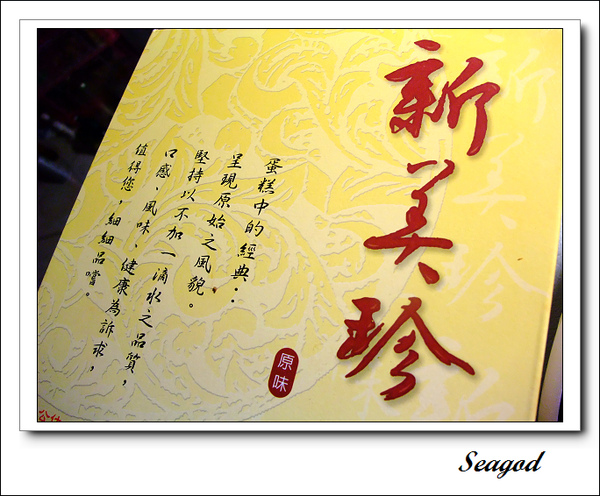 新美珍
蛋糕中的經典：
呈現原始之風貌。
堅持以不加一滴水之品質，
口感、風味、健康為訴求，
值得您，細細品嚐。
原味
Seagod